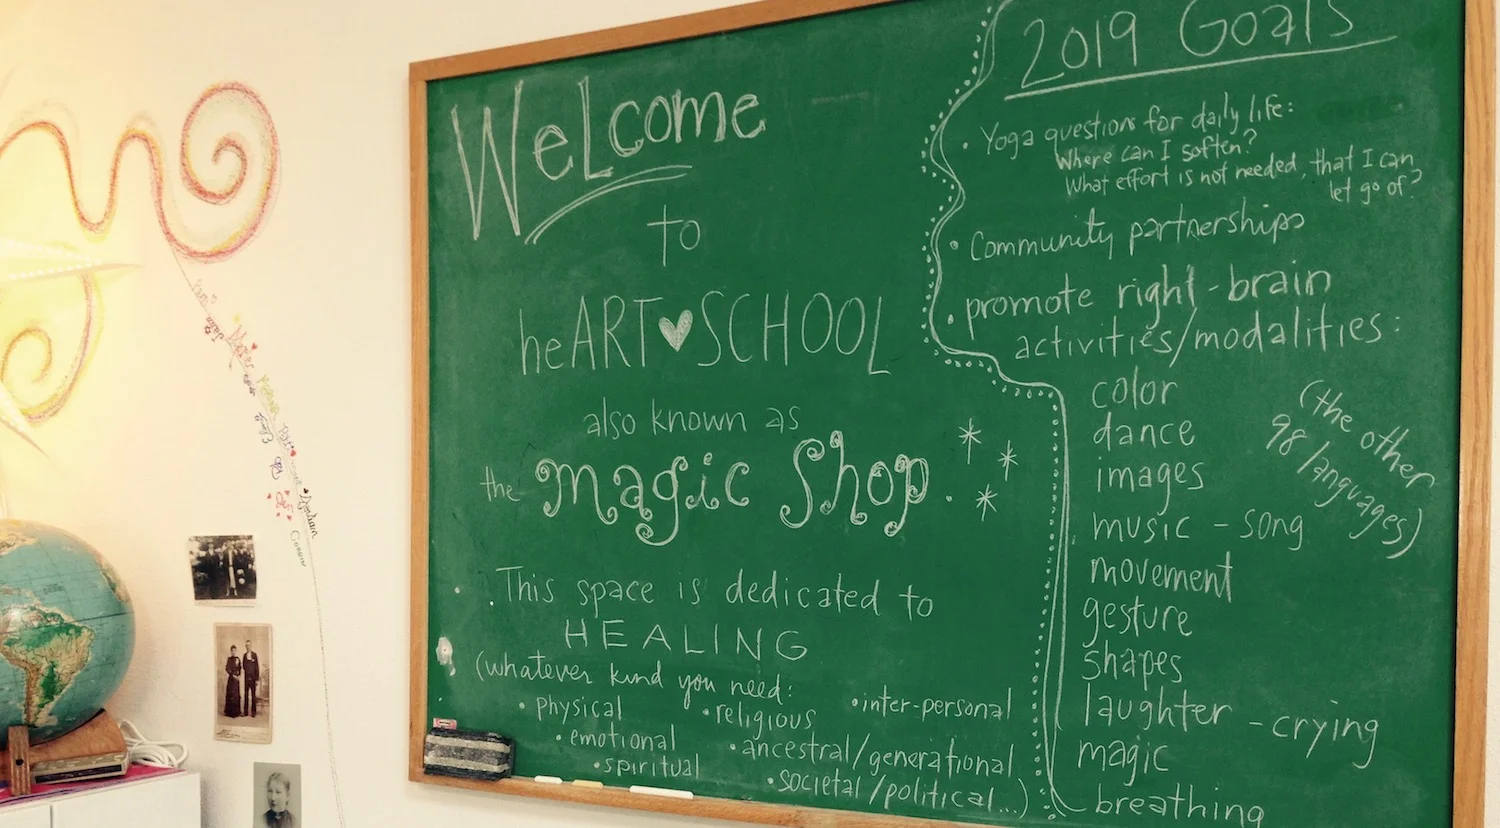 Welcome
to
heART♥SCHOOL
also known as
the magic shop.
This space is dedicated to
HEALING
(whatever kind you need:
• physical
• religious
• inter-personal
• emotional
• ancestral/generational
• spiritual
• societal/political...)
2019 Goals
• Yoga questions for daily life:
Where can I soften?
What effort is not needed, that I can
let go of?
• Community partnerships
• promote right-brain
activities/modalities:
color
dance
images
music - song
movement
gesture
shapes
laughter - crying
magic
breathing
(the other
98 languages)